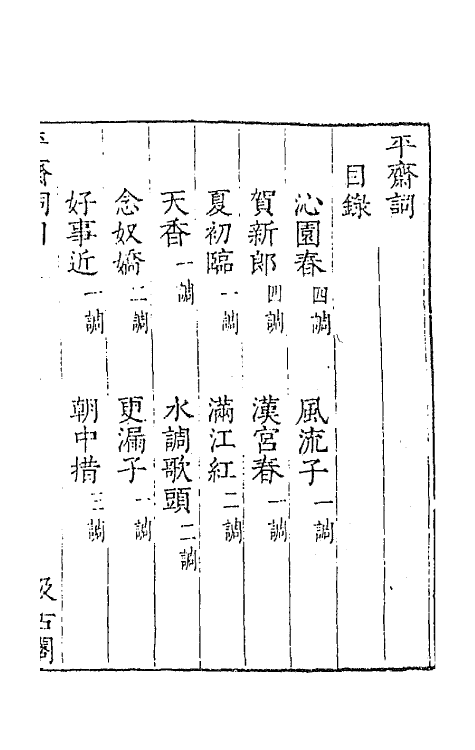 平齋詞
目錄
沁園春四調　風流子一調
賀新郎四調　漢宮春一調
夏初臨一調　滿江紅二調
天香一調　水調歌頭二調
念奴嬌二調　更漏子一調
好事近一調　朝中措三調
平齋詞　汲古閣